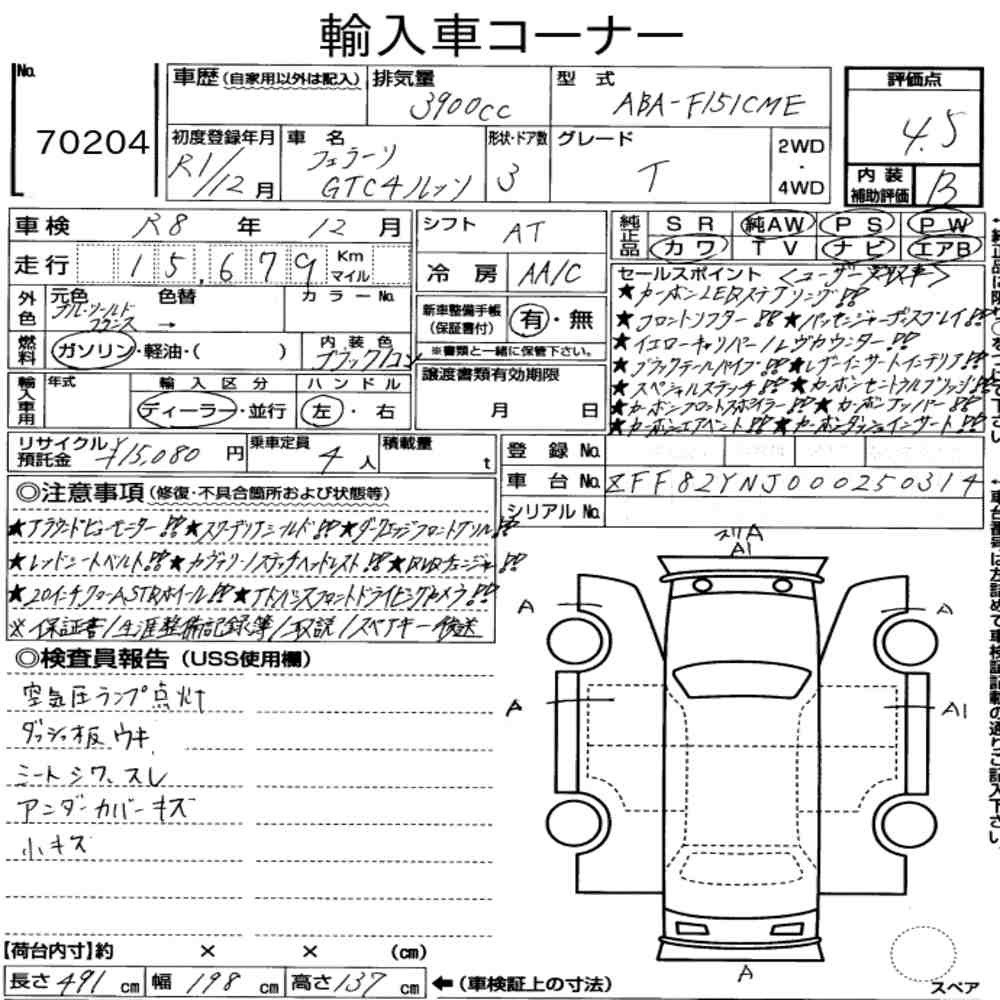 輸入車コーナー
No.
70204
車歴（自家用以外は記入）
排気量
3900cc
型 式
ABA-F151CME
評価点
4.5
初度登録年月
R1/12月
車 名
フェラーリ
GTC4ルッソ
形状・ドア数
3
グレード
T
2WD
・
4WD
内 装
補助評価
B
車検 R8 年 12 月
走行 15,679 Km マイル
シフト AT
冷房 AA/C
純正品
SR 純AW PS PW
カワ TV ナビ エアB
外色
元色
色替
カラーNo.
→
内装色
燃料
ガソリン・軽油・（ ）
新車整備手帳
（保証書付）
有・無
※書類と一緒に保管下さい。
セールスポイント <ユーザー買取車>
★カーボンLEDステアリング!!
★フロントリフター!! ★パッセンジャーディスプレイ!!
★イエローキャリパー/レヴカウンター!!
★ブラックテールパイプ!! ★レザーインサートインテリア!!
★スペシャルステッチ!! ★カーボンセントラルブリッジ!!
★カーボンフロントスポイラー!! ★カーボンアッパー!!
★カーボンエアベント!! ★カーボンダッシュインサート!!
輸入車用
年式
輸入区分
ディーラー・並行
ハンドル
左・右
譲渡書類有効期限
月 日
リサイクル
預託金
¥15,080 円
乗車定員
4 人
積載量
t
登録 No.
車台 No. ZFF82YNJ000250314
シリアル No.
◎注意事項（修復・不具合箇所および状態等）
★アラウンドビューモニター!! ★スクーデリアシールド!! ★ダークエッジフロントグリル!!
★レッドシートベルト!! ★カヴァリーノステッチヘッドレスト!! ★DVDチェンジャー!!
★20インチクロームASTRホイール!! ★アドバンスフロントドライビングカメラ!!
※保証書/生涯整備記録簿/取説/スペアキー後送
◎検査員報告（USS使用欄）
空気圧ランプ点灯
ダッシュ板ウキ
シートシワ、スレ
アンダーカバーキズ
小キズ
スリA
A1
A
A
A
A1
A
【荷台内寸】約 × × （cm）
長さ 491 cm 幅 198 cm 高さ 137 cm ←（車検証上の寸法）
スペア